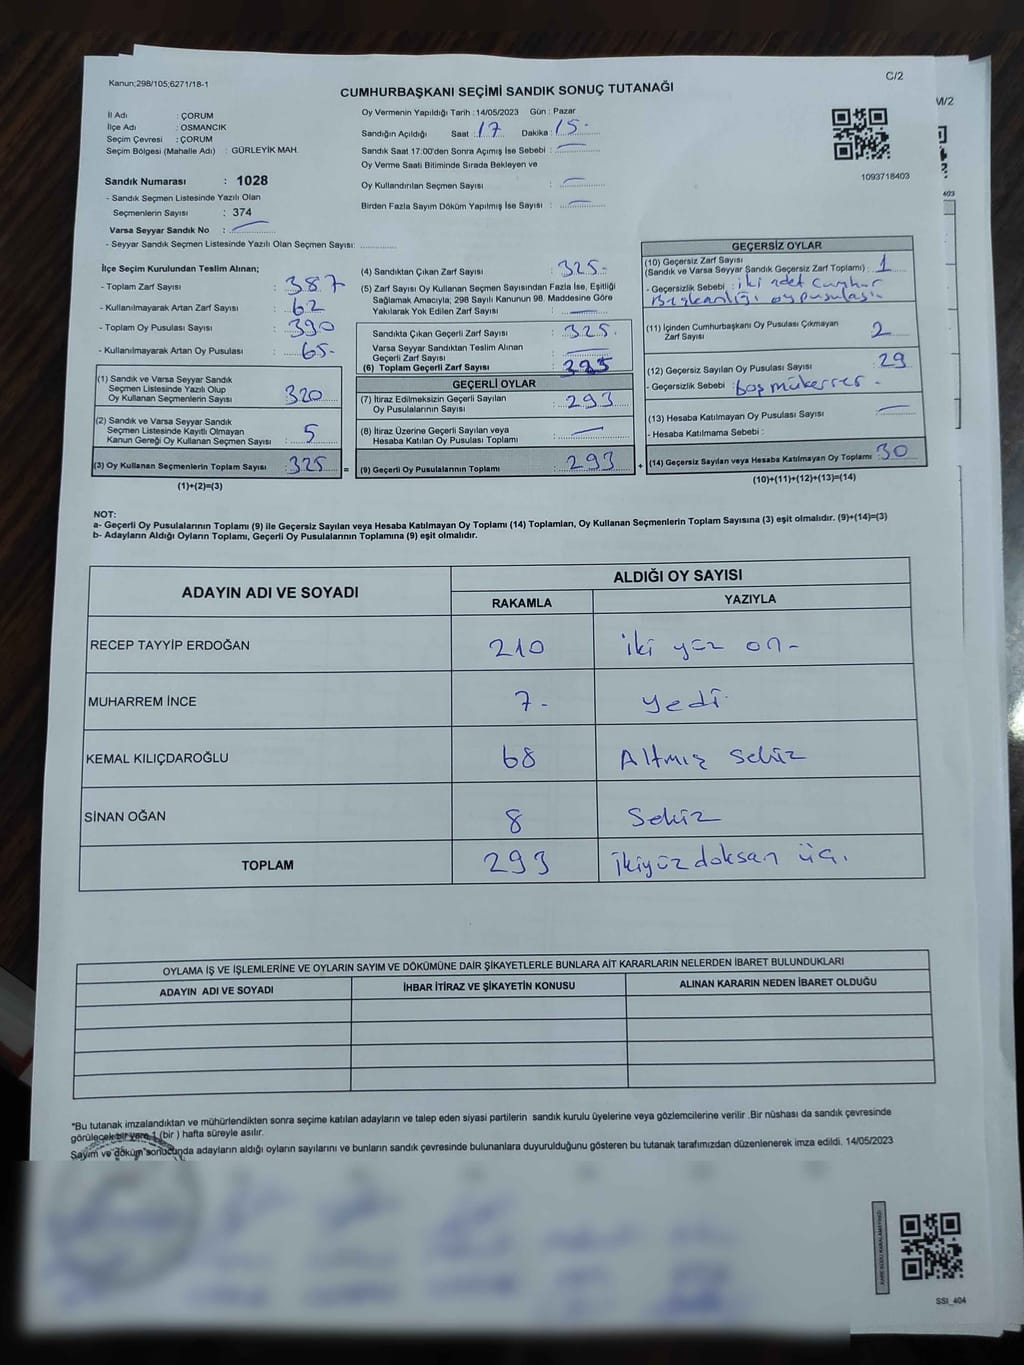 Kanun;298/105;6271/18-1
C/2
M/2
CUMHURBAŞKANI SEÇİMİ SANDIK SONUÇ TUTANAĞI
İl Adı : ÇORUM
İlçe Adı : OSMANCIK
Seçim Çevresi : ÇORUM
Seçim Bölgesi (Mahalle Adı) : GÜRLEYİK MAH.
Sandık Numarası : 1028
- Sandık Seçmen Listesinde Yazılı Olan
Seçmenlerin Sayısı : 374
Varsa Seyyar Sandık No :
- Seyyar Sandık Seçmen Listesinde Yazılı Olan Seçmen Sayısı:
Oy Vermenin Yapıldığı Tarih : 14/05/2023 Gün : Pazar
Sandığın Açıldığı Saat : 17 Dakika : 15-
Sandık Saat 17:00'den Sonra Açımış İse Sebebi :
Oy Verme Saati Bitiminde Sırada Bekleyen ve
Oy Kullandırılan Seçmen Sayısı :
Birden Fazla Sayım Döküm Yapılmış İse Sayısı :
1093718403
403
İlçe Seçim Kurulundan Teslim Alınan;
- Toplam Zarf Sayısı : 387
- Kullanılmayarak Artan Zarf Sayısı : 62
- Toplam Oy Pusulası Sayısı : 390
- Kullanılmayarak Artan Oy Pusulası : 65-
(1) Sandık ve Varsa Seyyar Sandık
Seçmen Listesinde Yazılı Olup
Oy Kullanan Seçmenlerin Sayısı : 320
(2) Sandık ve Varsa Seyyar Sandık
Seçmen Listesinde Kayıtlı Olmayan
Kanun Gereği Oy Kullanan Seçmen Sayısı : 5
(3) Oy Kullanan Seçmenlerin Toplam Sayısı : 325 =
(1)+(2)=(3)
(4) Sandıktan Çıkan Zarf Sayısı : 325-
(5) Zarf Sayısı Oy Kullanan Seçmen Sayısından Fazla İse, Eşitliği
Sağlamak Amacıyla, 298 Sayılı Kanunun 98. Maddesine Göre
Yakılarak Yok Edilen Zarf Sayısı :
Sandıkta Çıkan Geçerli Zarf Sayısı : 325.
Varsa Seyyar Sandıktan Teslim Alınan
Geçerli Zarf Sayısı :
(6) Toplam Geçerli Zarf Sayısı : 325
GEÇERLİ OYLAR
(7) İtiraz Edilmeksizin Geçerli Sayılan
Oy Pusulalarının Sayısı : 293
(8) İtiraz Üzerine Geçerli Sayılan veya
Hesaba Katılan Oy Pusulası Toplamı :
(9) Geçerli Oy Pusulalarının Toplamı : 293 +
GEÇERSİZ OYLAR
(10) Geçersiz Zarf Sayısı
(Sandık ve Varsa Seyyar Sandık Geçersiz Zarf Toplamı) : 1
- Geçersizlik Sebebi : iki adet Cumhur
Başkanlığı oy pusulası
(11) İçinden Cumhurbaşkanı Oy Pusulası Çıkmayan
Zarf Sayısı : 2
(12) Geçersiz Sayılan Oy Pusulası Sayısı : 29
- Geçersizlik Sebebi : boş mükerrer -
(13) Hesaba Katılmayan Oy Pusulası Sayısı :
- Hesaba Katılmama Sebebi :
(14) Geçersiz Sayılan veya Hesaba Katılmayan Oy Toplamı : 30
(10)+(11)+(12)+(13)=(14)
NOT:
a- Geçerli Oy Pusulalarının Toplamı (9) ile Geçersiz Sayılan veya Hesaba Katılmayan Oy Toplamı (14) Toplamları, Oy Kullanan Seçmenlerin Toplam Sayısına (3) eşit olmalıdır. (9)+(14)=(3)
b- Adayların Aldığı Oyların Toplamı, Geçerli Oy Pusulalarının Toplamına (9) eşit olmalıdır.
ADAYIN ADI VE SOYADI
ALDIĞI OY SAYISI
RAKAMLA YAZIYLA
RECEP TAYYİP ERDOĞAN 210 iki yüz on-
MUHARREM İNCE 7- yedi
KEMAL KILIÇDAROĞLU 68 Altmış sekiz
SİNAN OĞAN 8 Sekiz
TOPLAM 293 ikiyüz doksan üç.
OYLAMA İŞ VE İŞLEMLERİNE VE OYLARIN SAYIM VE DÖKÜMÜNE DAİR ŞİKAYETLERLE BUNLARA AİT KARARLARIN NELERDEN İBARET BULUNDUKLARI
ADAYIN ADI VE SOYADI İHBAR İTİRAZ VE ŞİKAYETİN KONUSU ALINAN KARARIN NEDEN İBARET OLDUĞU
*Bu tutanak imzalandıktan ve mühürlendikten sonra seçime katılan adayların ve talep eden siyasi partilerin sandık kurulu üyelerine veya gözlemcilerine verilir .Bir nüshası da sandık çevresinde
görülecek bir yere 1 (bir ) hafta süreyle asılır.
Sayım ve döküm sonucunda adayların aldığı oyların sayılarını ve bunların sandık çevresinde bulunanlara duyurulduğunu gösteren bu tutanak tarafımızdan düzenlenerek imza edildi. 14/05/2023
SSI_404